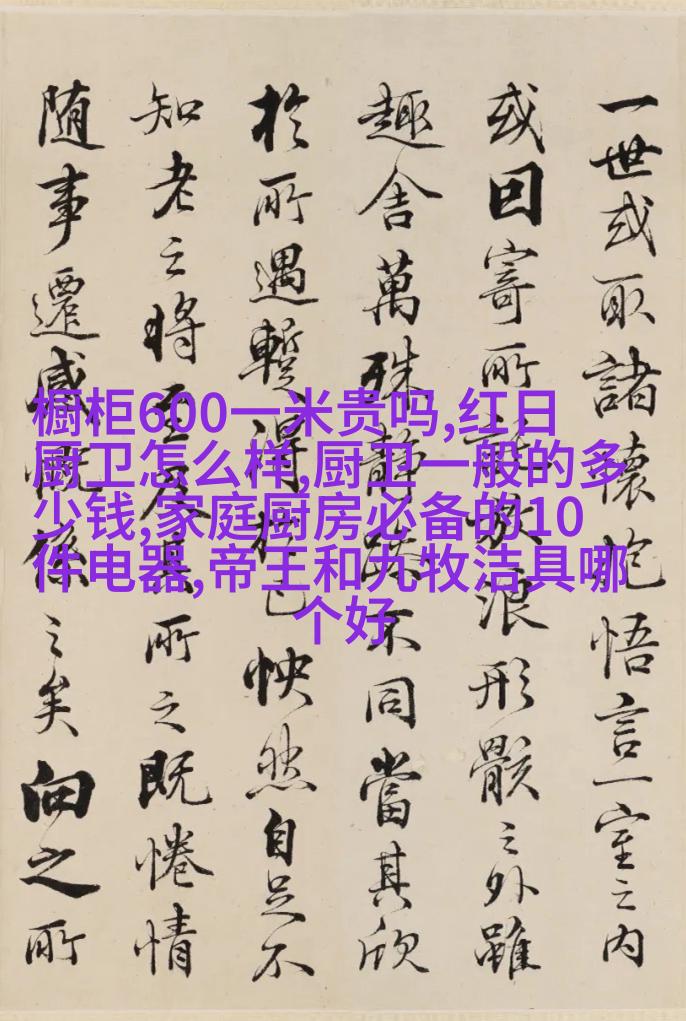 一世或取諸懷抱悟言一室之内
或因寄所託放浪形骸之外雖
趣舍萬殊静躁不同當其欣
於所遇蹔得於己怏然自足不
知老之將至及其所之既惓情
随事遷感慨係之矣向之所
橱柜600一米贵吗,红日
厨卫怎么样,厨卫一般的多
少钱,家庭厨房必备的10
件电器,帝王和九牧洁具哪
个好